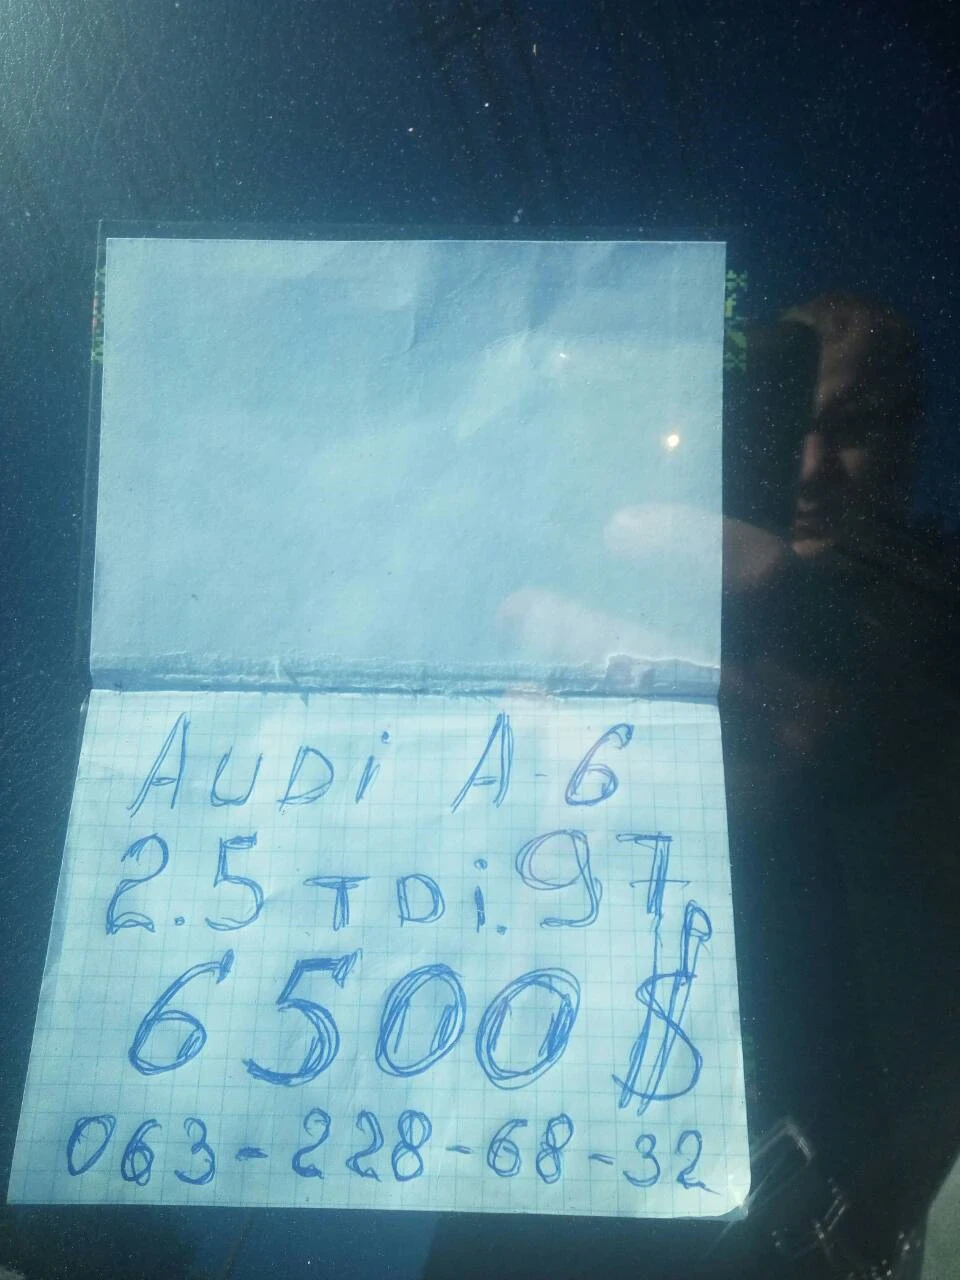 AUDi A-6
2.5 TDi. 97
6500$
063-228-68-32